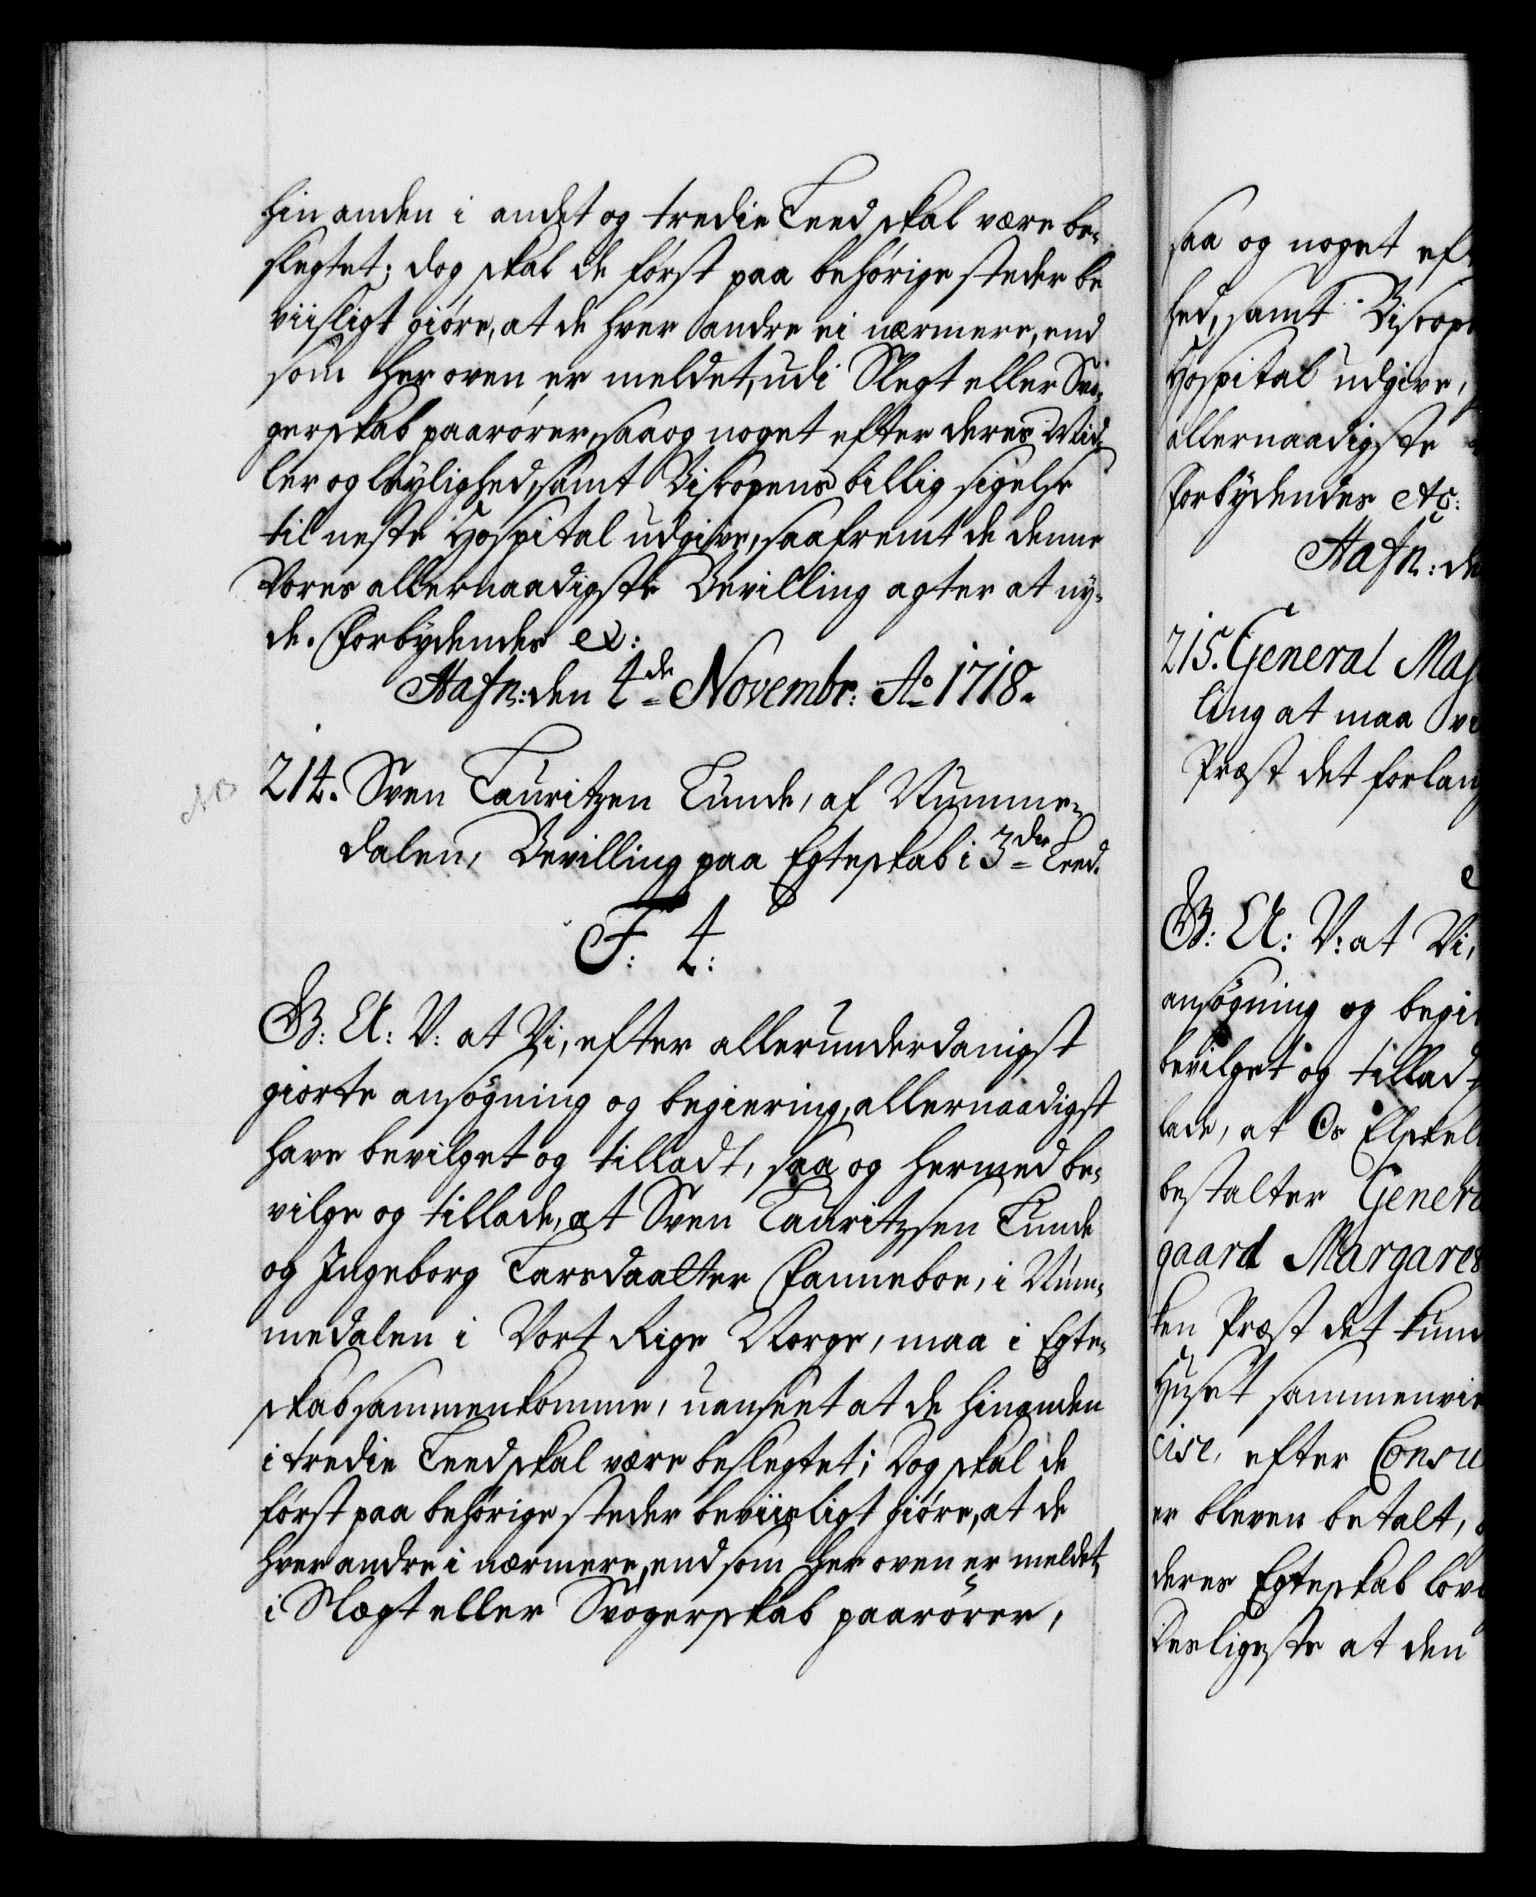 hinanden i andet og tredie Leed skal være be-
slegtet; dog skal de först paa behörige steder be
viisligt giöre, at de hver andre ei nærmere, end
som her oven er meldet, udi Slegt eller Svo-
gerskab paarörer, saa og noget efter deres Mid-
ler og leylighed, samt Biscopens billig sigelse
til neste Hospital udgive, saafremt de denne
Vores allernaadigste Bevilling agter at ny-
de. Forbydendes etc:
Hafn: den 4de Novembr: Ao 1718.
NB
214. Sven Lauritzen Lunde, af Numme-
dalen, Bevilling paa Egteskab i 3die Leed.
F: 4:
G: A: V: at Vi, efter allerunderdanigst
giorte ansögning og begiering, allernaadigst
have bevilget og tilladt, saa og hermed be-
vilge og tillade, at Sven Lauritzsen Lunde
og Ingeborg Larsdaatter Fanneboe, i Num-
medalen i Vort Rige Norge, maa i Egte-
skab sammenkomme, uanseet at de hinanden
i tredie Leed skal være beslegtet; Dog skal de
först paa behörige steder beviisligt giöre, at de
hver andre i nærmere, end som her oven er meldet,
i Slægt eller Svogerskab paarörer,
saa og noget eft
hed, samt Biscope
Hospital udgive,
allernaadigste
Forbydendes etc:
Hafn: de
215. General Maj
ling at maa vi
Præst det forlang
G: A: V: at Vi,
ansögning og begie
bevilget og tillad
lade, at Os Elskel
bestalter Genera
gaard Margaret
ken Præst det kun
Huset sammenvie
cise, efter Consu
er bleven betalt,
deres Egteskab lov
Desligeste at den